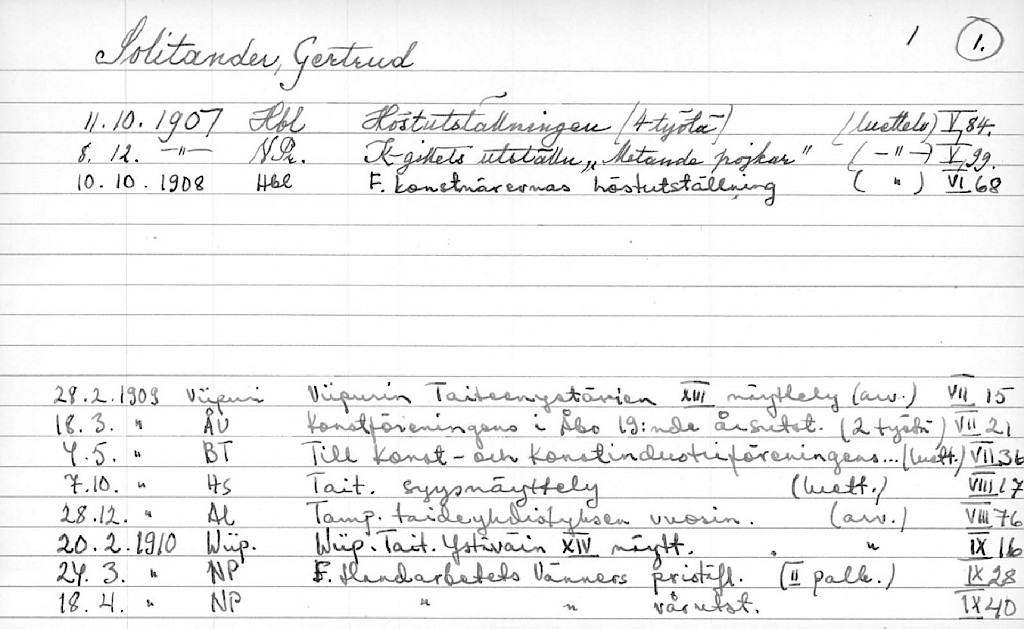 Solitander, Gertrud 1 1.
11.10.1907 Hbl Höstutställningen (4 työtä) (luettelo) V, 84.
8.12. —"— NPr. K-gillets utställn „Metande pojkar" (—"—) V, 99.
10.10.1908 Hbl F. konstnärernas höstutställning ( " ) VI 68
28.2.1909 Viipuri Viipurin Taiteenystävien XIII näyttely (arv.) VII 15
18.3. " ÅU Konstföreningens i Åbo 19:nde årsutst. (2 työtä) VII 21
4.5. " BT Till Konst- och Konstindustriföreningens... (luett.) VII 36
7.10. " HS Tait. syysnäyttely (luett.) VIII 17
28.12. " AL Tamp. taideyhdistyksen vuosin. (arv.) VIII 76
20.2.1910 Wiip. Wiip. Tait. Ystäväin XIV näytt. . " IX 16
24.3. " NP F. Handarbetets Vänners pristäfl. (II palk.) IX 28
18.4. " NP " " vårutst. IX 40